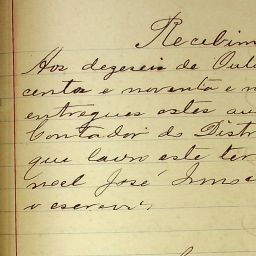 Recebim
Aos dezeseis de Outu
centos e noventa e n
entregues estes au
Contador do Distr
que lavro este ter
noel José
o escrevi,